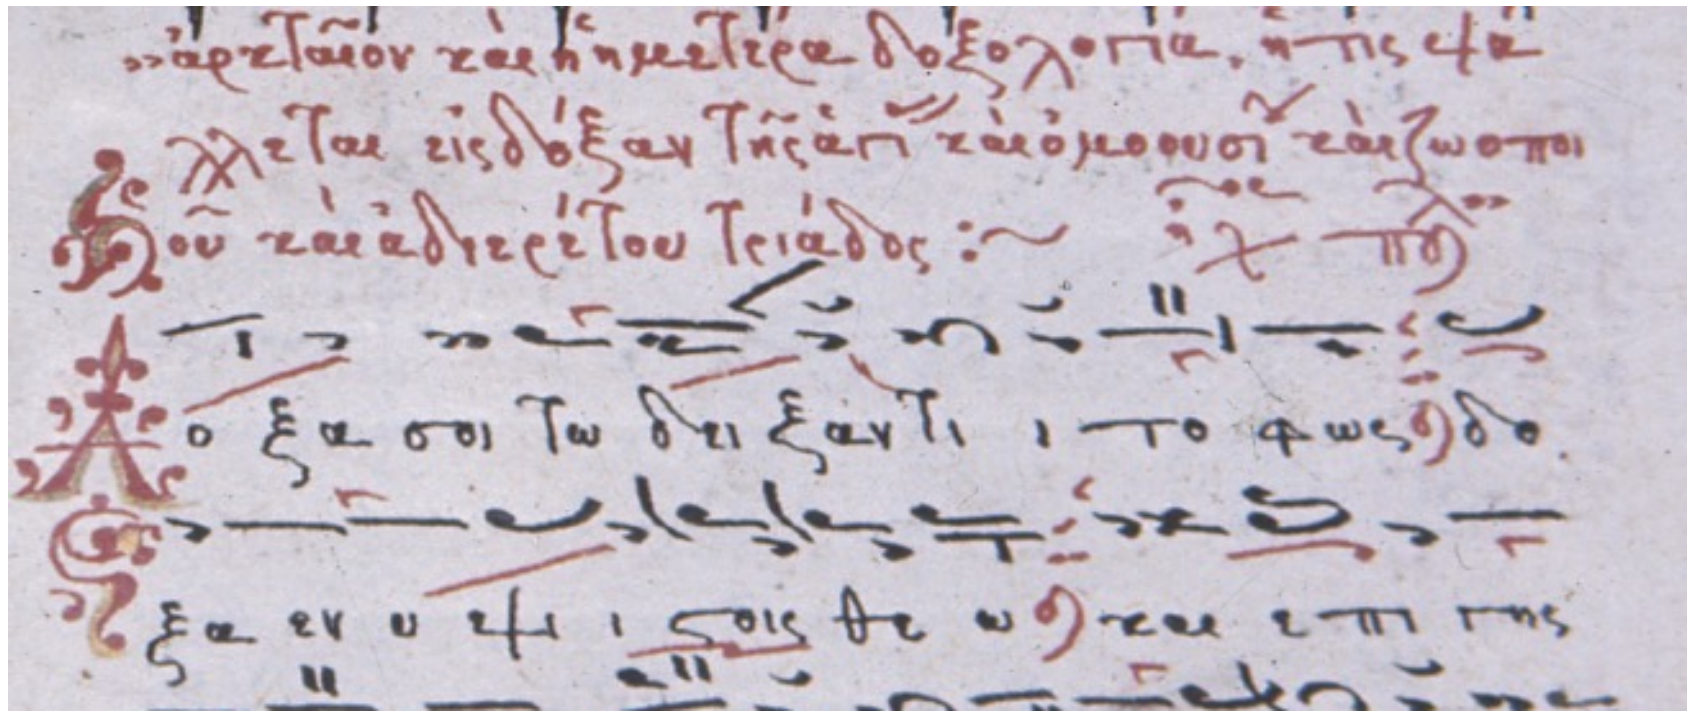 ἀρκταῖον καὶ ἡ ἡμετέρα δοξολογία, ἥτις ψά
λλεται εἰς δόξαν τῆς ἁγί καὶ ὁμοουσί καὶ ζωοποι
οῦ καὶ ἀδιερέτου τριάδος :~ ἦχ πδ
Δοξα σοι τω δειξαντι ι το φως δο
ξα εν υ ψι ι στοις θε ω και ε πι γης